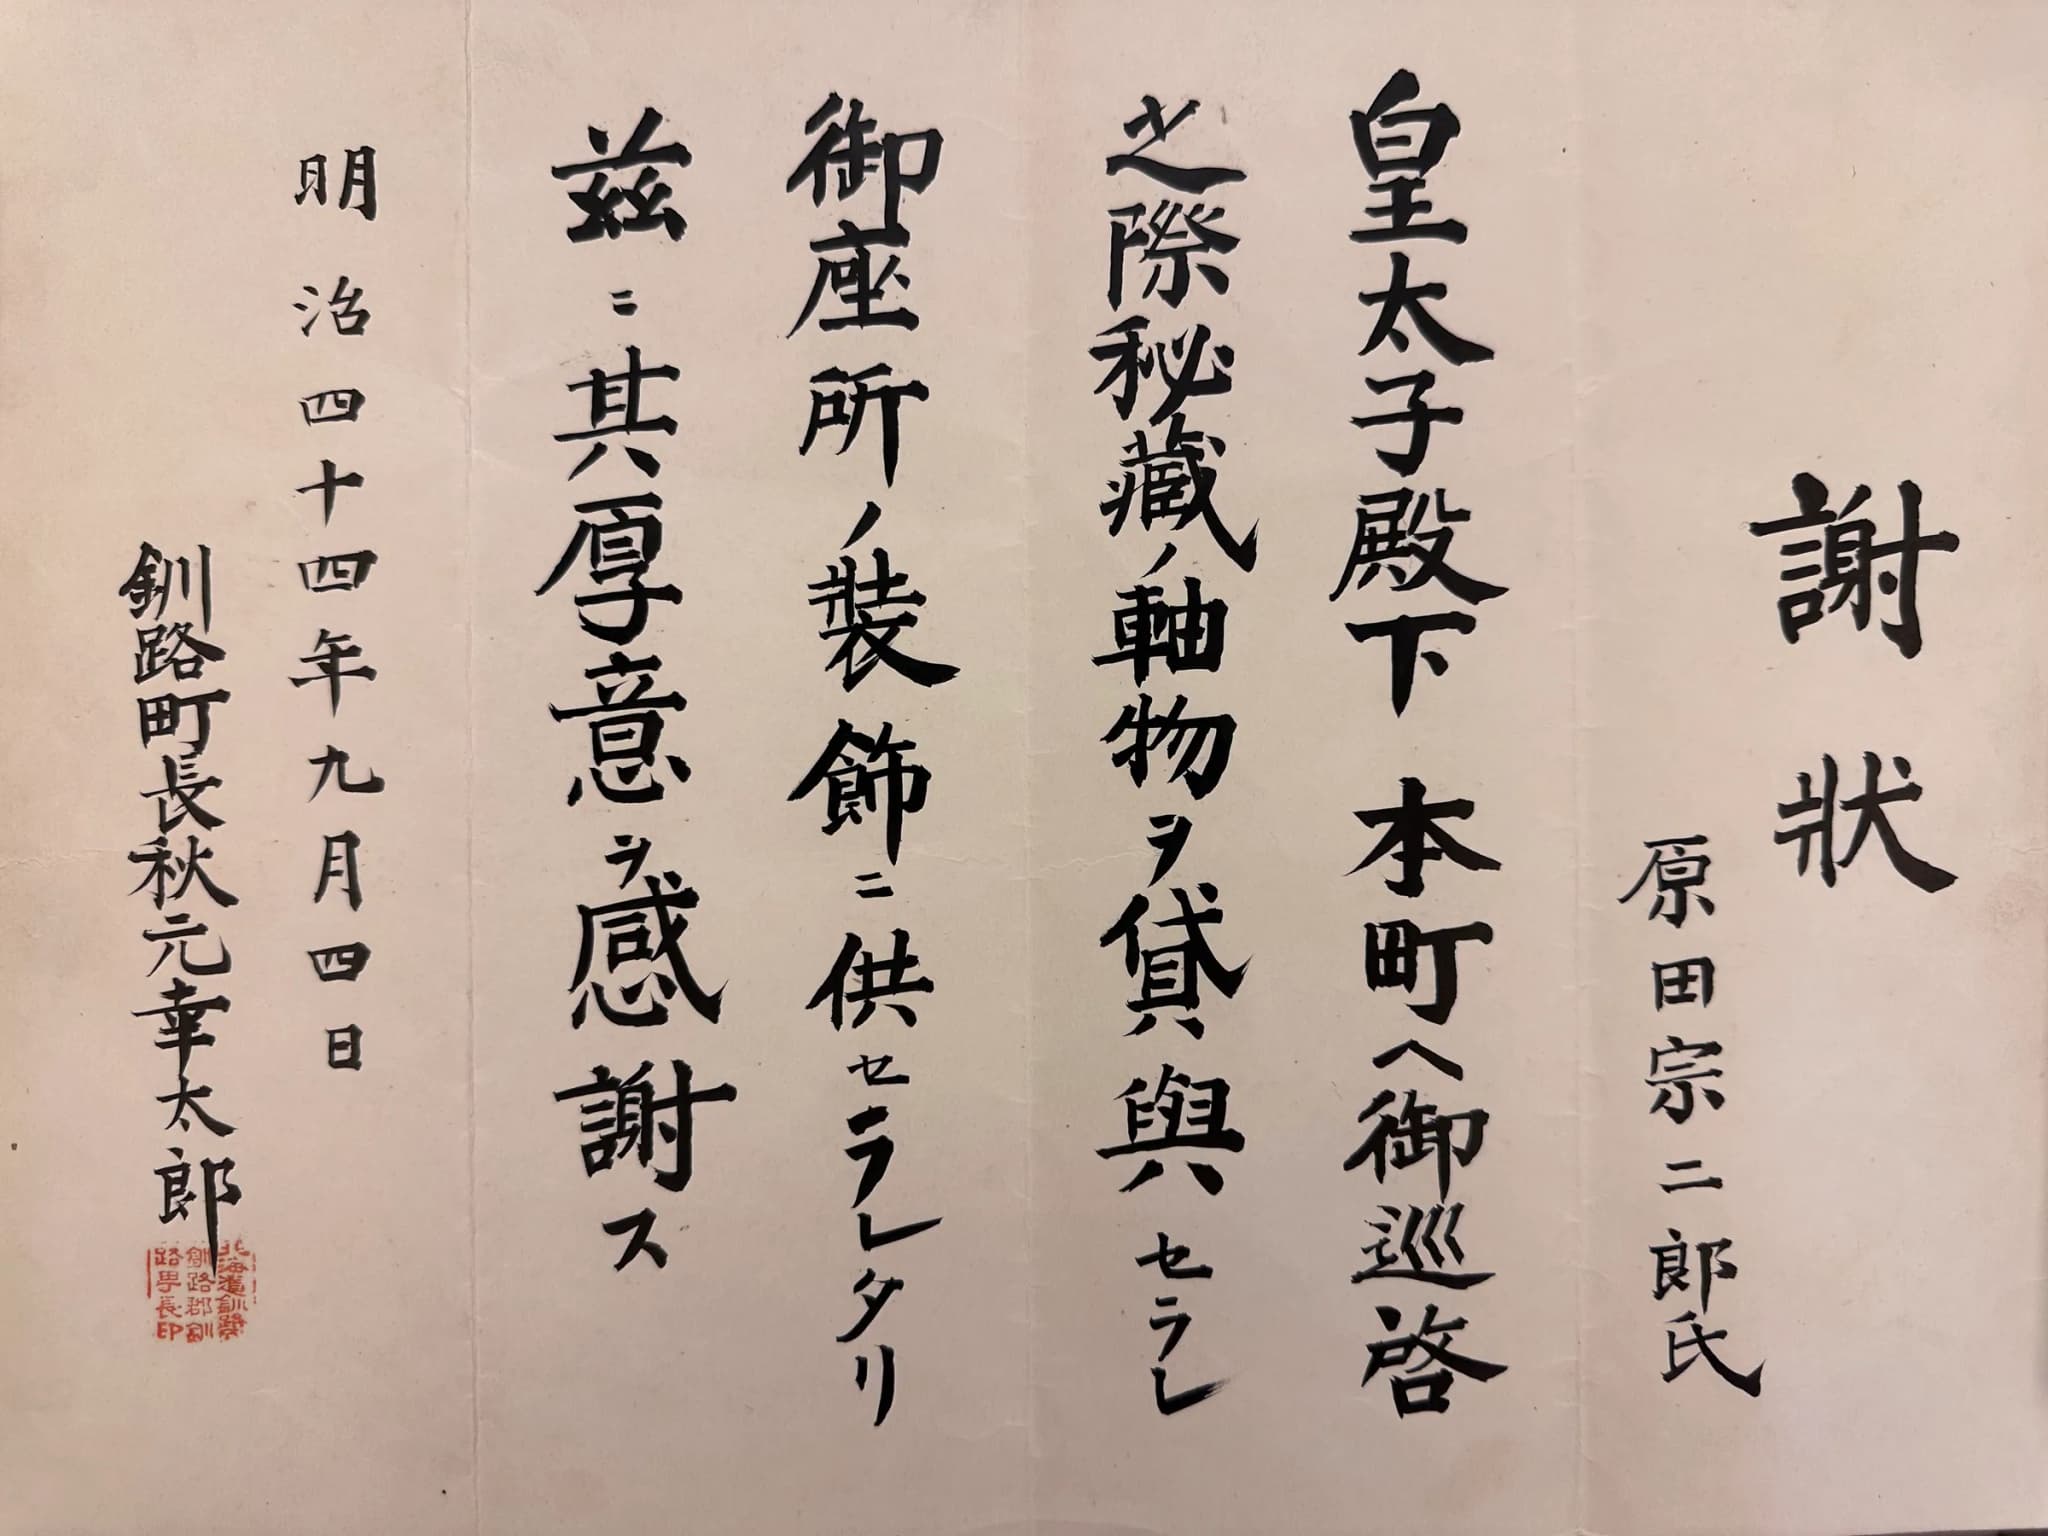 謝狀
原田宗二郎氏
皇太子殿下本町ヘ御巡啓
之際秘藏ノ軸物ヲ貸與セラレ
御座所ノ裝飾ニ供セラレタリ
茲ニ其厚意ヲ感謝ス
明治四十四年九月四日
釧路町長秋元幸太郎
北海道釧路
國釧路郡釧
路町長印